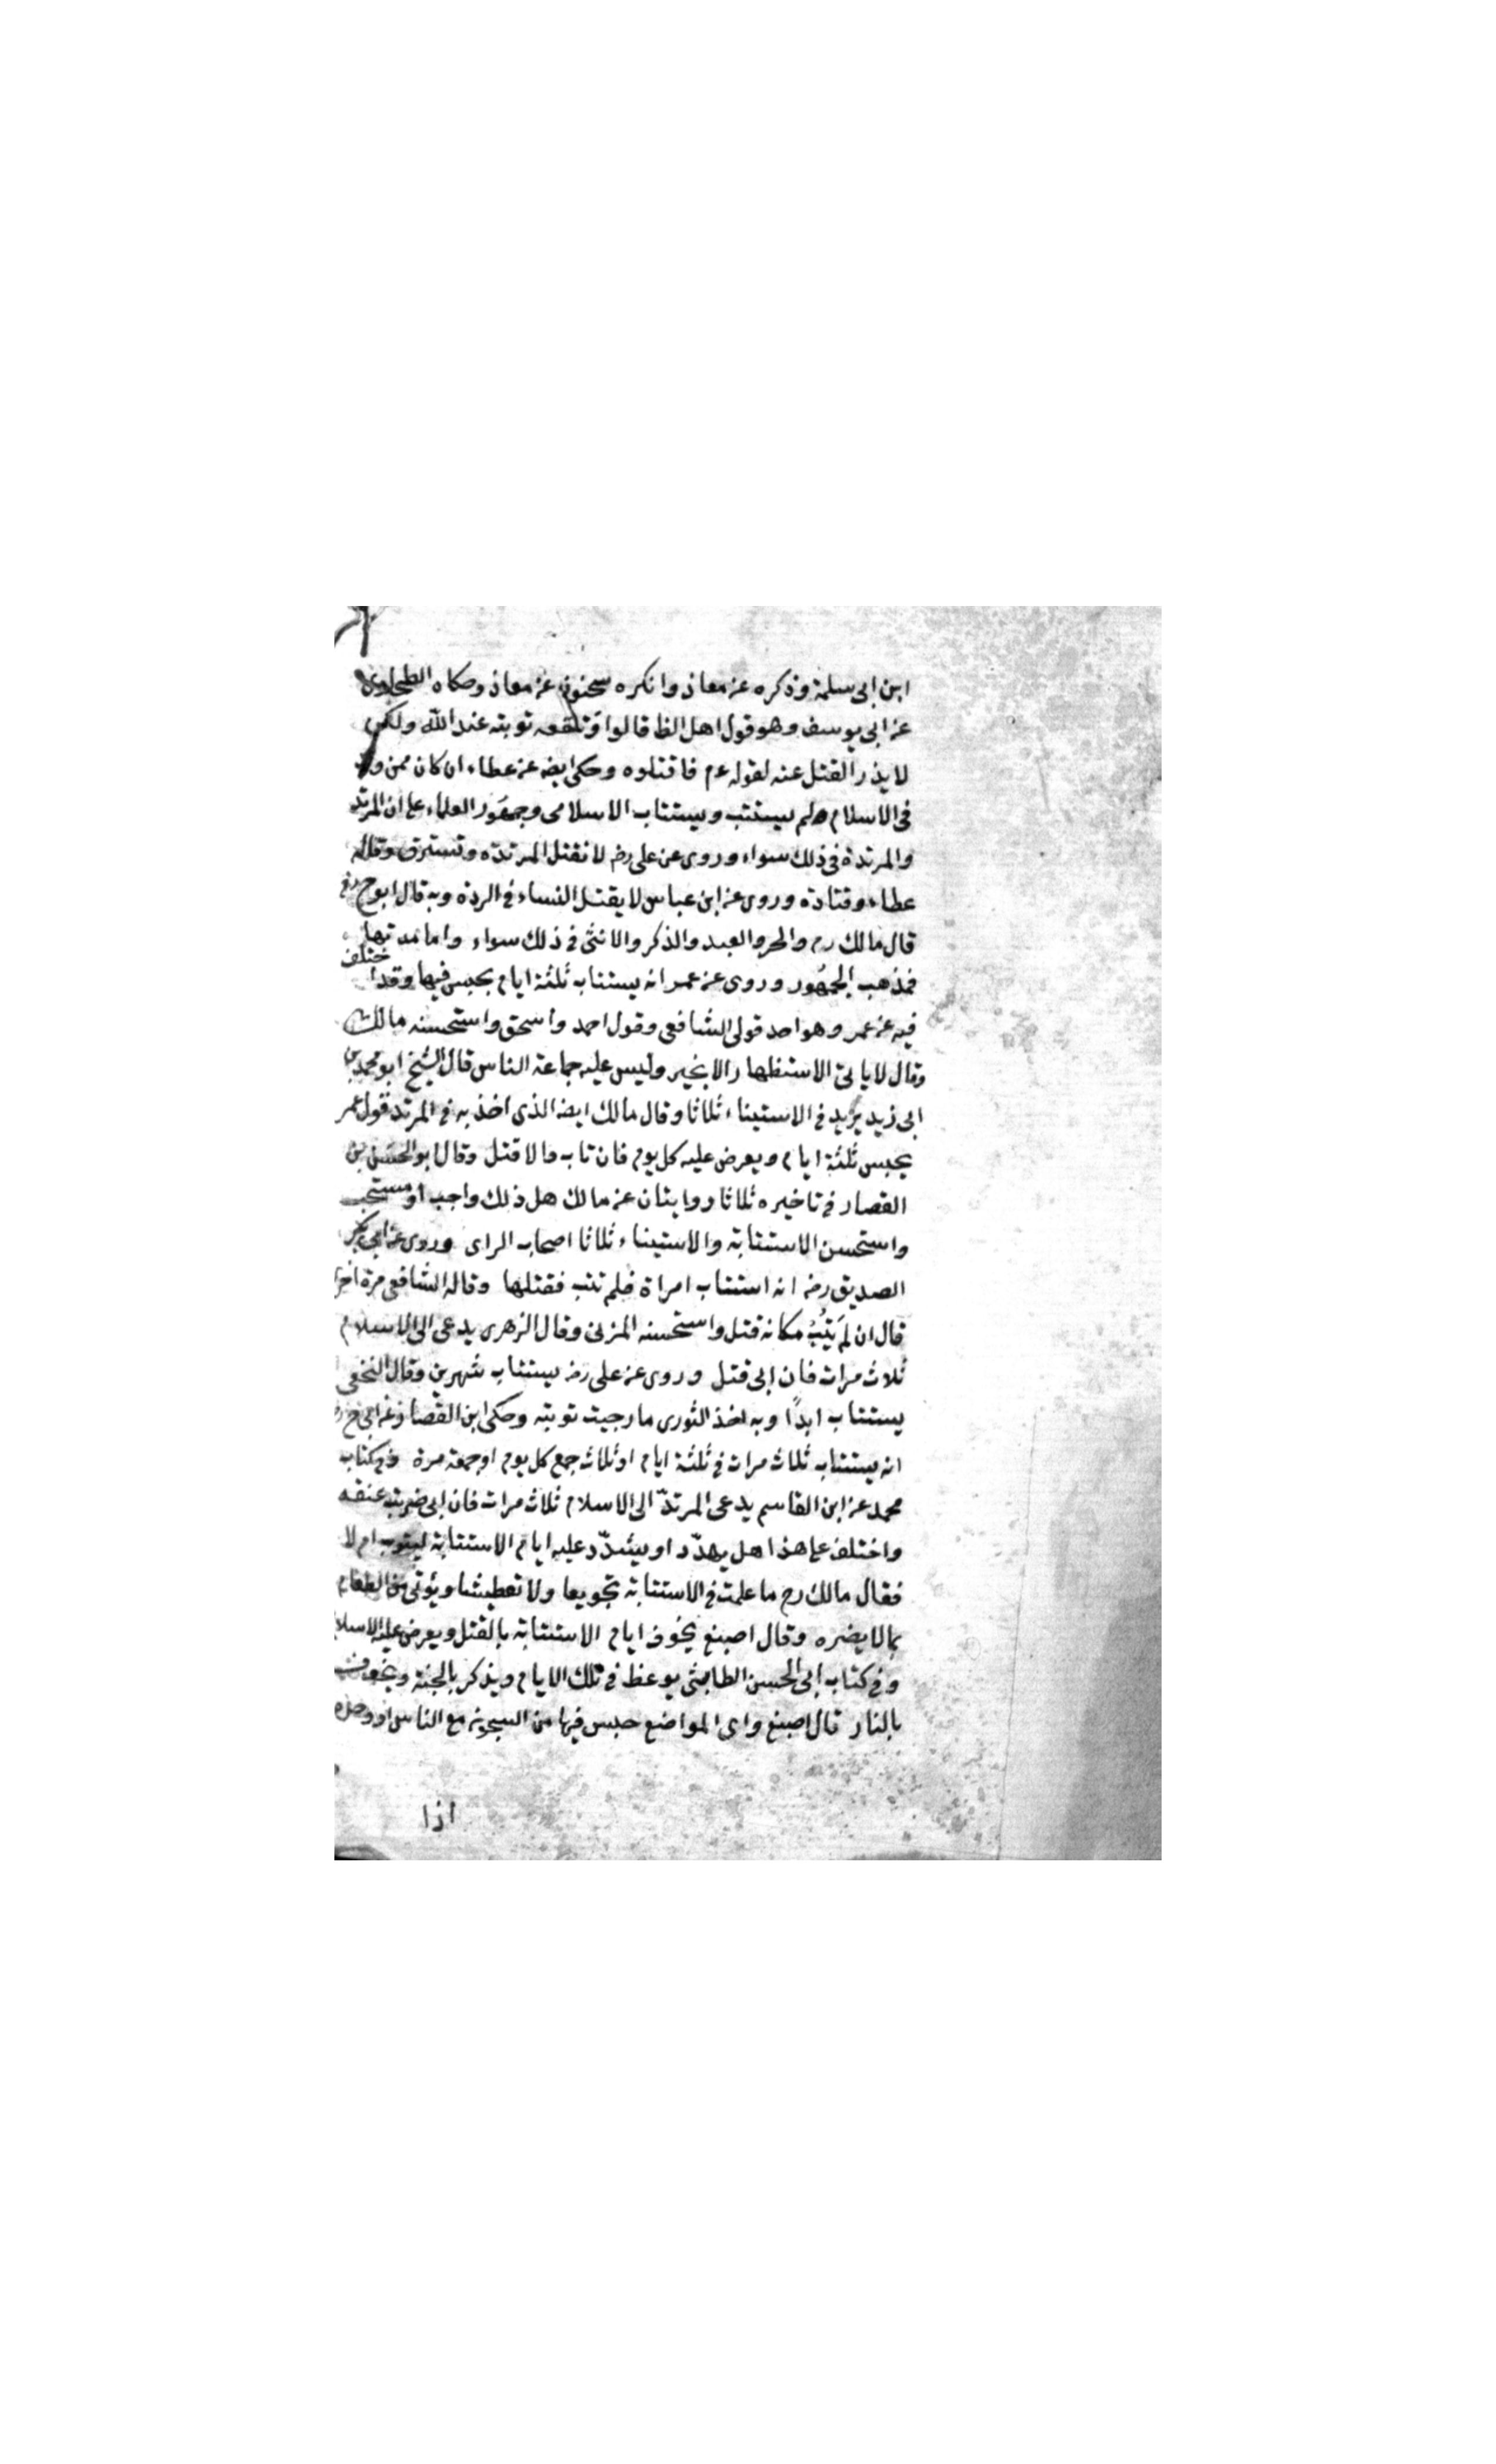 ابن ابى سلمة وذكره عن معاذ وانكره سحنون عن معاذ وحكاه الطحاوى
عن ابى يوسف وهو قول اهل الظا قالوا وتنفعه توبته عند الله ولكن
لا يذر القتل عنه لقوله عم فاقتلوه وحكى ايضه عن عطاء ان كان ممن ولد
فى الاسلام لم يستتب ويستتاب الاسلامى وجمهور العلماء على ان المرتد
والمرتدة فى ذلك سواء وروى عن على رضه لا تقتل المرتده وتسترق وقاله
عطاء وقتادة وروى عن ابن عباس لا يقتل النساء فى الردة وبه قال ابو ح
قال مالك رح والحر والعبد والذكر والانثى فى ذلك سواء واما مدتها
فمذهب الجمهور وروى عن عمر انه يستتاب ثلثة ايام يحبس فيها وقد اختلف
فيه عن عمر وهو احد قولى الشافعى وقول احمد واسحق واستحسنه مالك
وقال لا ياتى الاستظهار الا بخير وليس عليه جماعة الناس قال الشيخ ابو محمد بن
ابى زيد يريد فى الاستيناء ثلاثا وقال مالك ايضه الذى اخذ به فى المرتد قول عمر
يحبس ثلثة ايام ويعرض عليه كل يوم فان تاب والا قتل وقال ابو الحسن بن
القصار فى تاخيره ثلاثا روايتان عن مالك هل ذلك واجب او مستحب
واستحسن الاستتابة والاستيناء ثلاثا اصحاب الراى وروى عن ابى بكر
الصديق رضه انه استتاب امراة فلم تتب فقتلها وقاله الشافعى مرة
قال ان لم يتب مكانه قتل واستحسنه المزنى وقال الزهرى يدعى الى الاسلام
ثلاث مرات فان ابى قتل وروى عن على رضه يستتاب شهرين وقال النخعى
يستتاب ابدًا وبه اخذ الثورى ما رجيت توبته وحكى ابن القصار عن ابى ح
انه يستتاب ثلاث مرات فى ثلثة ايام او ثلاث جمع كل يوم او جمعة مرة وفى كتاب
محمد عن ابن القاسم يدعى المرتدّ الى الاسلام ثلاث مرات فان ابى ضربت عنقه
واختلف على هذا هل يهدّد او يشدّد عليه ايام الاستتابة ليتوب ام لا
فقال مالك رح ما علمت فى الاستتابة تجويعا ولا تعطيشا ويؤتى من الطعام
بما لا يضره وقال اصبغ يخوف ايام الاستتابة بالقتل ويعرض عليه الاسلام
وفى كتاب ابى الحسن الطابثى يوعظ فى تلك الايام ويذكر بالجنة ويخوف
بالنار قال اصبغ واى المواضع حبس فيها من السجون مع الناس او وحده
اذا